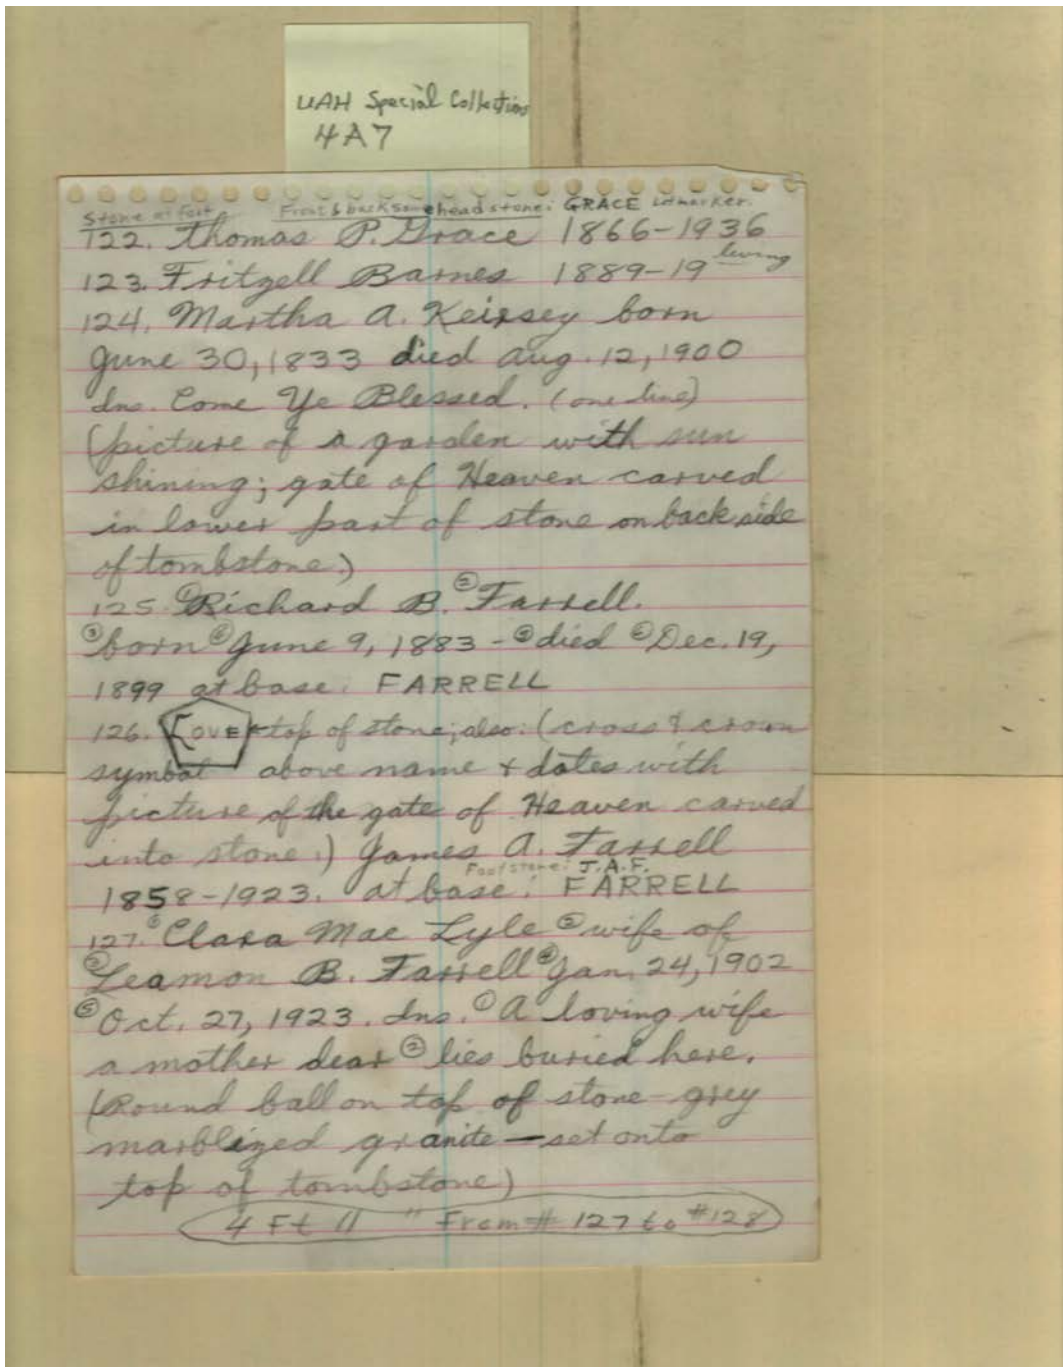 UAH Special Collections
4A7
Stone at foot Front & back same headstone: GRACE
122. Thomas P. Grace 1866-1936
123. Fritzell Barnes 1889-19 living
124. Martha A. Keirsey born
June 30, 1833 died Aug. 12, 1900
Ins. Come Ye Blessed. (one line)
(picture of a garden with sun
shining; gate of Heaven carved
in lower part of stone on back side
of tombstone.)
125. ① Richard B. ② Farrell.
③ born ④ June 9, 1883 - ⑤ died ⑥ Dec. 19,
1899 at base: FARRELL
126. top of stone; also: (cross & crown
symbol above name & dates with
picture of the gate of Heaven carved
into stone.) James A. Farrell
Footstone: J.A.F.
1858-1923. at base: FARRELL
127. ① Clara Mae Lyle ② wife of
③ Leamon B. Farrell ④ Jan. 24, 1902
⑤ Oct. 27, 1923. Ins. ① A loving wife
a mother dear ② lies buried here.
(Round ball on top of stone-grey
marblized granite—set onto
top of tombstone)
4 Ft 11 " From # 127 to #128